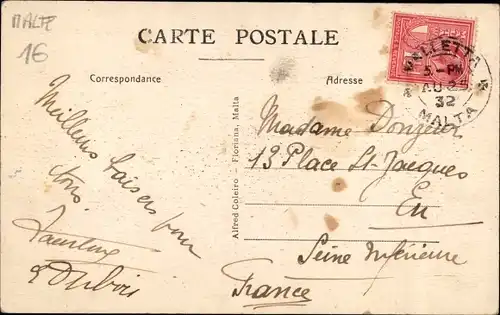 MALTE
16
CARTE POSTALE
Correspondance
Adresse
VALLETTA
5-PM
AU 25
32
MALTA
Meilleurs baisers pour
tous
E Dubois
Alfred Coleiro - Floriana, Malta
Madame
13 Place St-Jacques
Eu
Seine Inférieure
France